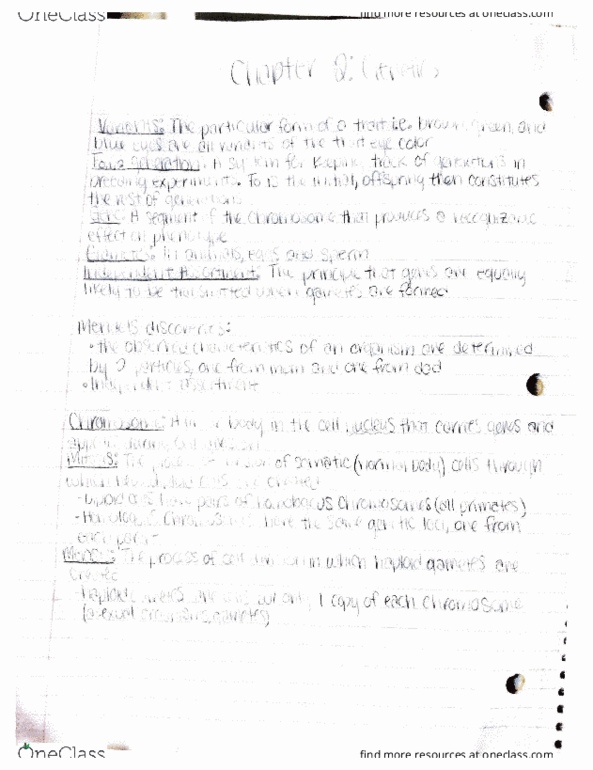 OneClass
find more resources at oneclass.com
Chapter 2: Genetics
Variants: The particular form of a trait i.e. brown, green, and
blue eyes are all variants of the trait eye color
generation: A system for keeping track of generations in
breeding experiments. Fo is the initial, offspring then constitutes
the rest of generations
Gene: A segment of the chromosome that produces a recognizable
effect on phenotype
Gametes: In animals, eggs and sperm
Independent Assortment: The principle that genes are equally
likely to be transmitted when gametes are formed
Mendel's discoveries:
• the observed characteristics of an organism are determined
by 2 particles, one from mom and one from dad
• Independent assortment
Chromosome: A linear body in the cell nucleus that carries genes and
during cell
Mitosis: The process of division of somatic (normal body) cells through
which are created
- Diploid cells have pairs of homologous chromosomes (all primates)
- Homologous chromosomes have the same genetic loci, one from
each parent
Meiosis: The process of cell division in which haploid gametes are
created
- haploid 1 copy of each chromosome
(asexual organisms, gametes)
OneClass
find more resources at oneclass.com